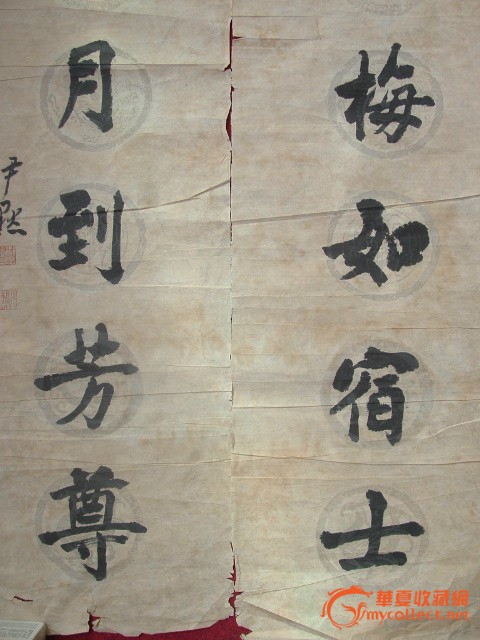 梅如宿士
月到芳尊
尹默
華夏收藏網
mycollect.net